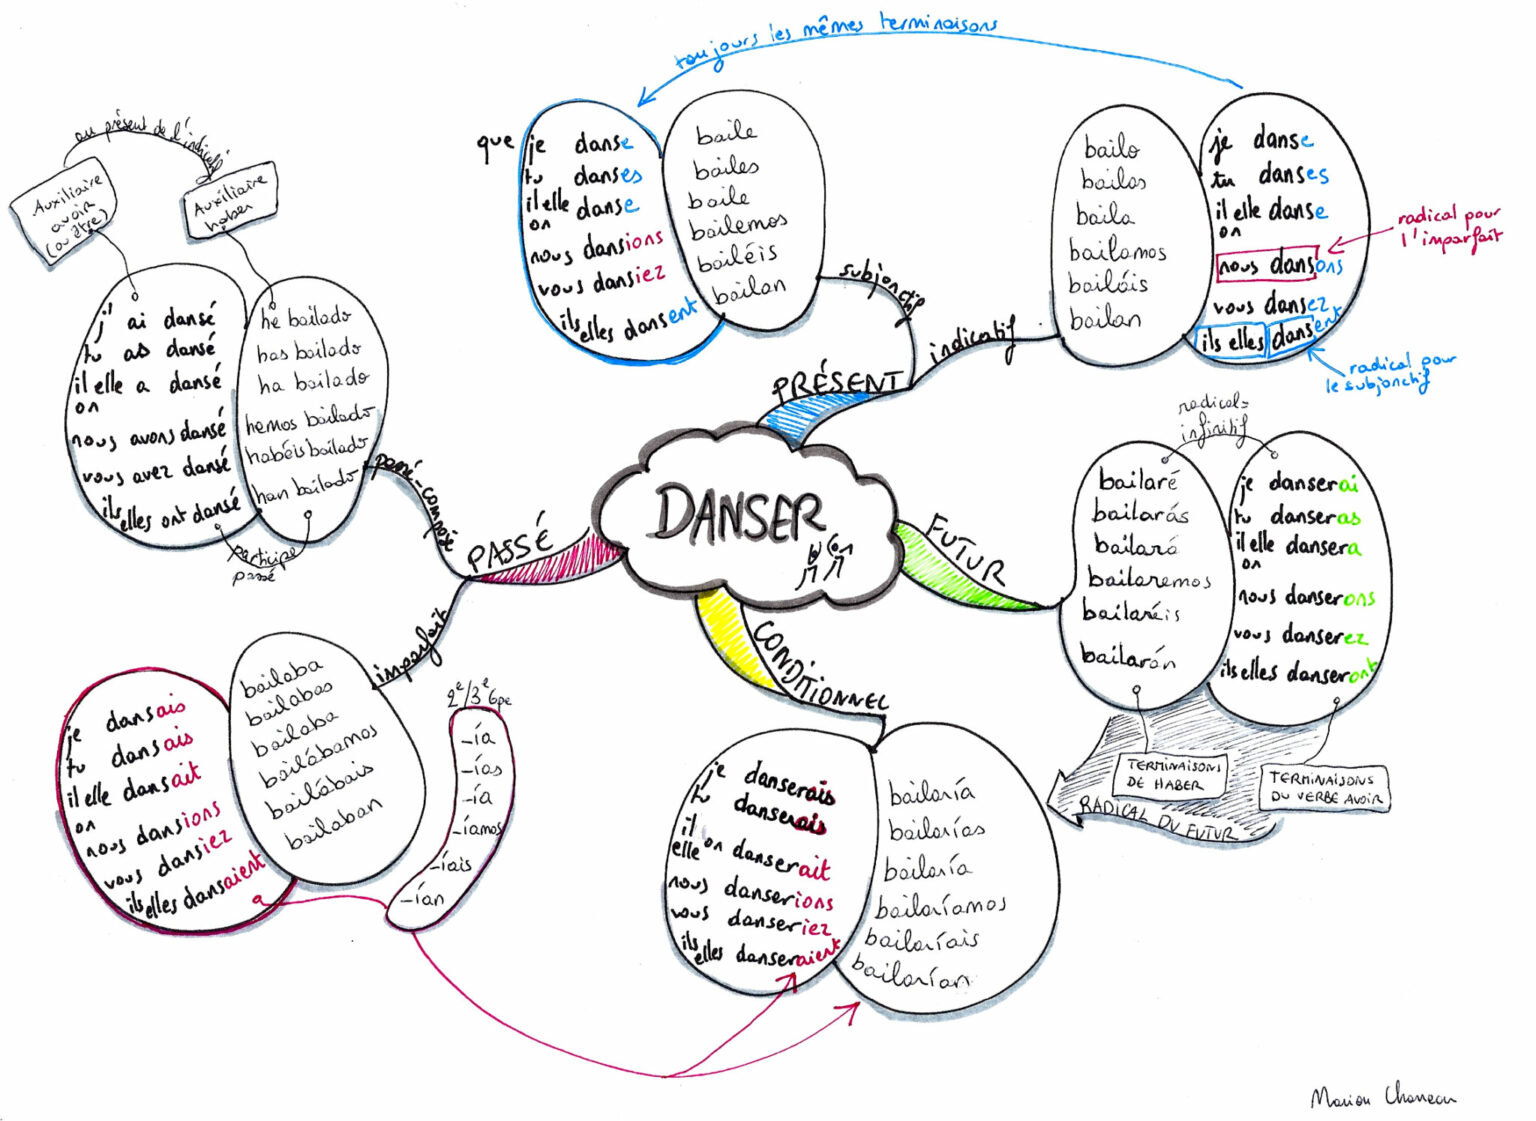 DANSER
PRÉSENT
indicatif
bailo
bailas
baila
bailamos
bailáis
bailan
je danse
tu danses
il elle danse
on
nous dansons
vous dansez
ils elles dansent
radical pour
l'imparfait
radical pour
le subjonctif
toujours les mêmes terminaisons
subjonctif
que je danse
tu danses
il elle danse
on
nous dansions
vous dansiez
ils elles dansent
baile
bailes
baile
bailemos
bailéis
bailan
FUTUR
radical=
infinitif
bailaré
bailarás
bailará
bailaremos
bailaréis
bailarán
je danserai
tu danseras
il elle dansera
on
nous danserons
vous danserez
ils elles danseront
TERMINAISONS
DE HABER
TERMINAISONS
DU VERBE AVOIR
RADICAL DU FUTUR
CONDITIONNEL
je danserais
tu danserais
il elle on danserait
nous danserions
vous danseriez
ils elles danseraient
bailaría
bailarías
bailaría
bailaríamos
bailaríais
bailarían
PASSÉ
imparfait
je dansais
tu dansais
il elle dansait
on
nous dansions
vous dansiez
ils elles dansaient
bailaba
bailabas
bailaba
bailábamos
bailábais
bailaban
2e/3e Gpe
-ía
-ías
-ía
-íamos
-íais
-ían
passé-composé
au présent de l'indicatif
Auxiliaire
avoir
(ou être)
Auxiliaire
haber
j'ai dansé
tu as dansé
il elle a dansé
on
nous avons dansé
vous avez dansé
ils elles ont dansé
he bailado
has bailado
ha bailado
hemos bailado
habéis bailado
han bailado
participe
passé
Marion